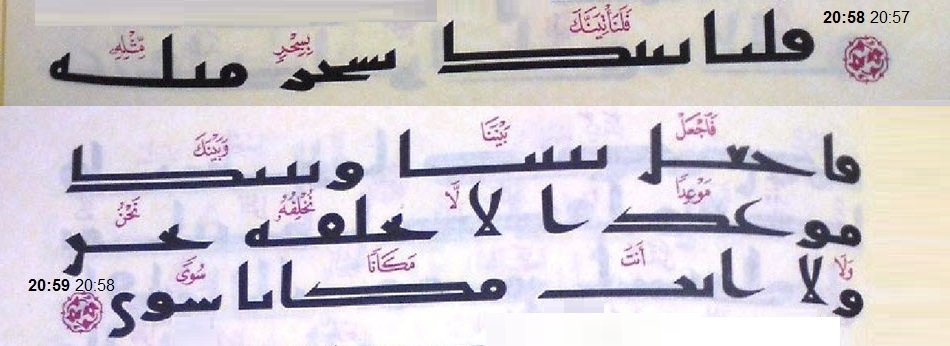 20:58 20:57
فَلَنَأْتِيَنَّكَ بِسِحْرٍ مِّثْلِهِ
فلناتينك بسحر مثله
فَاجْعَلْ بَيْنَنَا وَبَيْنَكَ
فاجعل بيننا وبينك
مَوْعِدًا لَّا نُخْلِفُهُ نَحْنُ
موعدا لا نخلفه نحن
وَلَا أَنتَ مَكَانًا سُوًى
ولا انت مكانا سوى
20:59 20:58